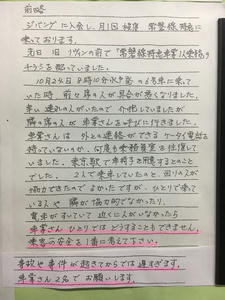 前略
ジパングに入会し、月1回程度 常磐線特急に
乗っております。
先日 旧 リヴィンの前で「常磐線特急車掌1人乗務」の
チラシを配っていました。
10月24日 8時10分水戸発の6号車に乗って
いた時 前々席の人が具合が悪くなりました。
多い連れの人がいたので 介抱していましたが
隣の席の人が車掌さんを呼びに行きました。
車掌さんは 外と連絡ができるケータイ電話を
持っていないのか、何度も乗務員室を往復して
いました。東京駅で車椅子を用意するとのこと
でした。 2人で乗車していたのと、回りの人が
協力できたのでよかったですが、ひとりで乗って
いる人や 隣が協力的でなかったり、
電車がすいていて 近くに人がいなかったら
車掌さん ひとりではどうすることもできません。
乗客の安全を1番に考えて下さい。
事故や事件が起きてからでは遅すぎます。
車掌さん2名でお願いします。